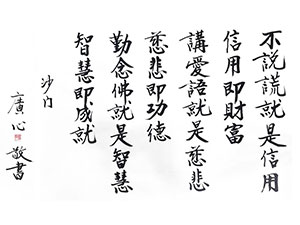 不說謊就是信用
信用即財富
講愛語就是慈悲
慈悲即功德
勤念佛就是智慧
智慧即成就
沙門
廣心敬書